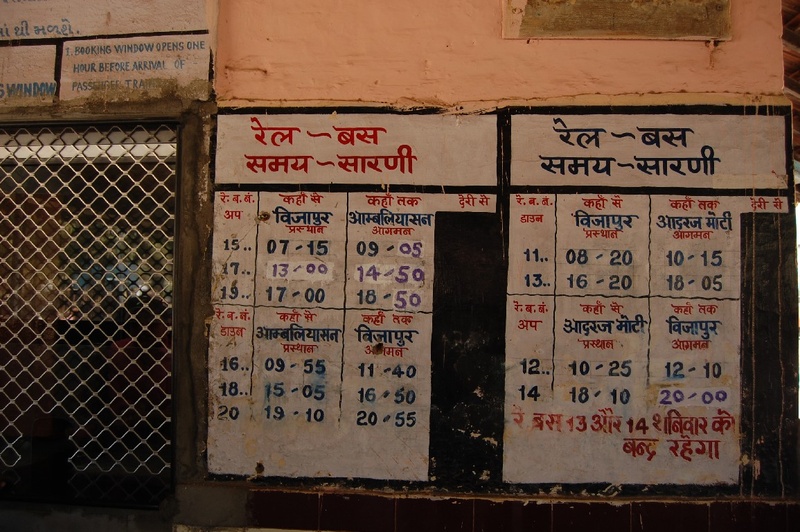 માં થી મળશે.
1. BOOKING WINDOW OPENS ONE
HOUR BEFORE ARRIVAL OF
PASSENGER TRAIN
WINDOW
रेल ~ बस
समय - सारणी
रे. ब. बं. कहाँ से कहाँ तक देरी से
अप विजापुर आम्बलियासन
प्रस्थान आगमन
15.. 07-15 09-05
17.. 13-00 14-50
19.. 17-00 18-50
रे. ब. बं. कहाँ से कहाँ तक
डाउन आम्बलियासन विजापुर
प्रस्थान आगमन
16.. 09-55 11-40
18.. 15-05 16-50
20 19-10 20-55
रेल ~ बस
समय - सारणी
रे. ब. बं. कहाँ से कहाँ तक देरी से
डाउन विजापुर आदरज मोटी
प्रस्थान आगमन
11.. 08-20 10-15
13.. 16-20 18-05
रे. ब. बं. कहाँ से कहाँ तक
अप आदरज मोटी विजापुर
प्रस्थान आगमन
12.. 10-25 12-10
14 18-10 20-00
रे बस 13 और 14 शनिवार को
बन्द रहेगा